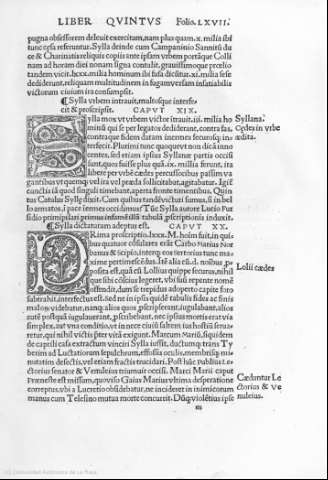 LIBER QVINTVS Folio. LXVII.
pugna obsessorem deleuit exercitum, nam plus quam. x. milia ibi
tunc cęsa referuntur. Sylla deinde cum Campanino Sannitũ du
ce & Charinatia reliquis copiis ante ipsam vrbem portãque Colli
nam ad horam diei nonam signa contulit, grauissimoque prœlio
tandem vicit. lxxx. milia hominum ibi fusa dicũtur. xi. milia sese
dediderunt, reliquam multitudinem in fugam versam insatiabilis
victorum ciuium ira consumpsit.
¶ Sylla vrbem intrauit, multosque interfe
cit & proscripsit. CAPVT XIX.
Sylla mox vt vrbem victor ítrauit. iii. milia ho
minũ qui se per legatos dediderant, contra fas,
contraque fidem datam inermes securosq; in-
terfecit. Plurimi tunc quoque vt non dicã inno
centes, sed etiam ipsius Syllanę partis occisi
sunt, quos fuisse plus quã. ix. milia ferunt, ita
liberę per vrbē cædes percussoribus passim va
gantibus vt quemq; vel ira vel pręda sollicitabat, agitabat̃. Igit̃
cunctis iã quod singuli timebant, aperta fronte frementibus. Quin
tus Catulus Syllę dixit. Cum quibus tandē victuri sumus, si in bel
lo armatos, i pace inermes occidimus? Tũc Sylla autore Lucio Fur
sidio primipilari primus infamē illã tabulã ꝓscriptionis induxit.
¶ Sylla dictaturam adeptus est. CAPVT XX.
PRima proscriptio. lxxx. M. hoĩm fuit, in qui
bus quatuor cõsulares erãt Carbo Marius Nor
banus & Scipio, inter q̃s tertorius tunc ma-
xime pertimescẽdus. Itē alia cũ. d. noĩbus, ꝓ
posita est, quã cũ Lollius quippe securus, nihil
que sibi cõscius legeret, vbi suũ repente nomē
offendit, dum se trepidus adoperto capite foro
subtrahit, interfectus est. Sed ne in ipsis quidē tabulis fides ac finis
malorũ videbatur, namq; alios quos ꝓscripserant, iugulabant, alios
autē postquã iugulauerant, ꝓscribebant, nec ipsius mortis erat via
simplex, aut vna cõnditio, vt in nece ciuiũ saltem ius hostiũ serua-
retur, qui nihil victis pręter vitã exigunt. Marcum Mariũ, siquidem
de capelli casa extractum vinciri Sylla iussit, ductumq; trans Ty
berim ad Luctatiorum sepulchrum, effossis oculis, membrisq; mi
nutatim desectis, vel etiam fractis trucidari. Post hũc publiut Le-
ctorius senator & Venuleius triumuir occisi. Marci Marii caput
Pręneste est missum, quo viso Gaius Marius vltima desperatione
correptus, vbi a Lucretio obsidebatur, ne incideret in inimicorum
manus cum Telesino mutua morte concurrit. Dũq; violẽtius ipse
Syllana
Cędes in vrbe
ædita.
Lolii cædes
Cæduntur Le
ctorius & Ve
nuleius.
m